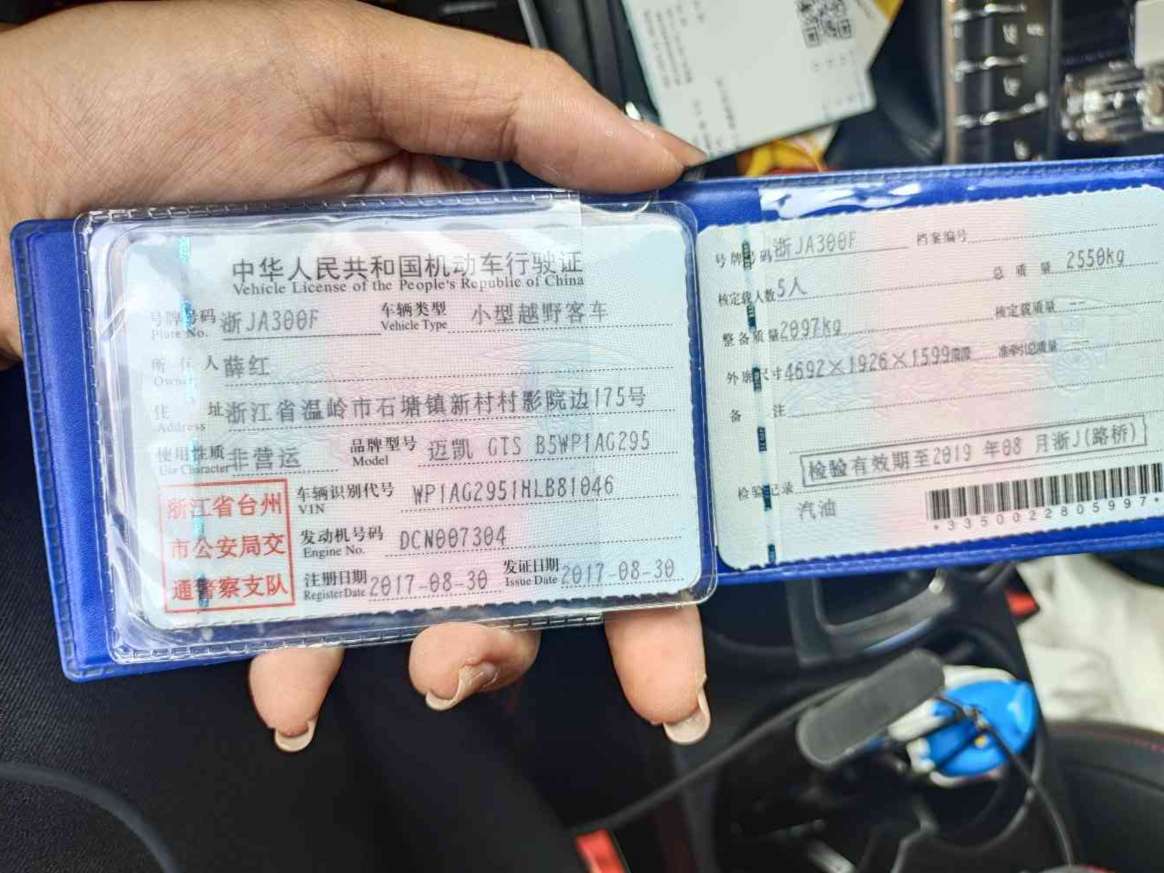 中华人民共和国机动车行驶证
Vehicle License of the People's Republic of China
号牌号码 浙JA300F 车辆类型 小型越野客车
Plate No. Vehicle Type
所有人 薛红
Owner
住址 浙江省温岭市石塘镇新村村影院边175号
Address
使用性质 非营运 品牌型号 迈凯 GTS B5WP1AG295
Use Character Model
浙江省台州
市公安局交
通警察支队
车辆识别代号 WP1AG2951HLB81046
VIN
发动机号码 DCN007304
Engine No.
注册日期 2017-08-30 发证日期 2017-08-30
Register Date Issue Date
号牌号码 浙JA300F 档案编号
核定载人数 5人 总质量 2550kg
整备质量 2097kg 核定载质量 --
外廓尺寸 4692×1926×1599mm 准牵引总质量 --
备注
检验有效期至2019年08月浙J(路桥)
检验记录
汽油
*3350022805997*